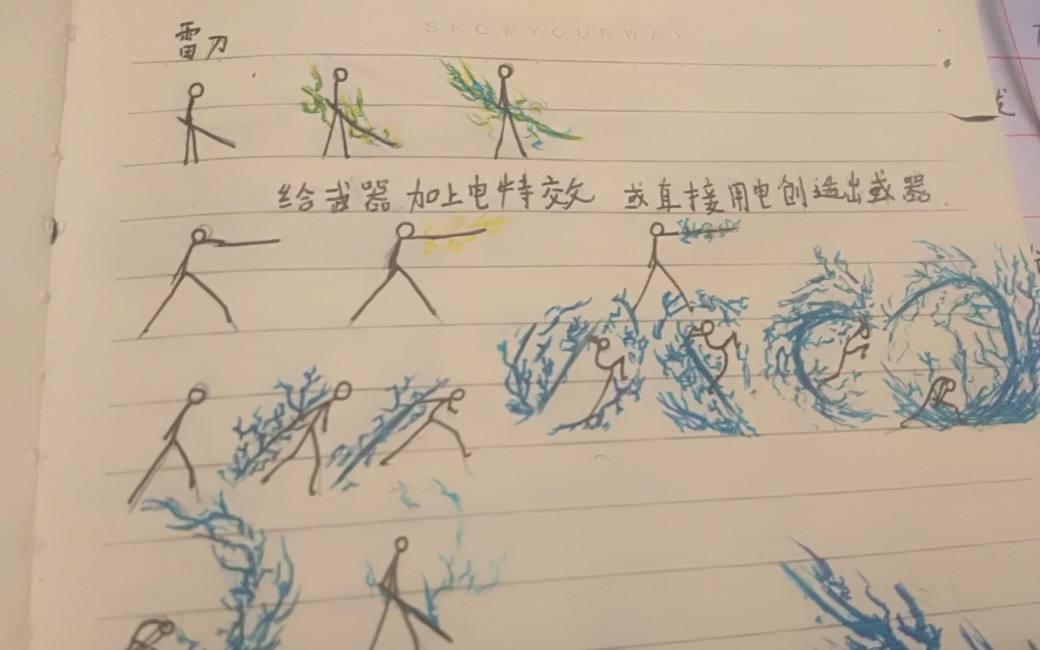 SHOWYOURWAY
雷刀
给武器加上电特效 或直接用电创造出武器.